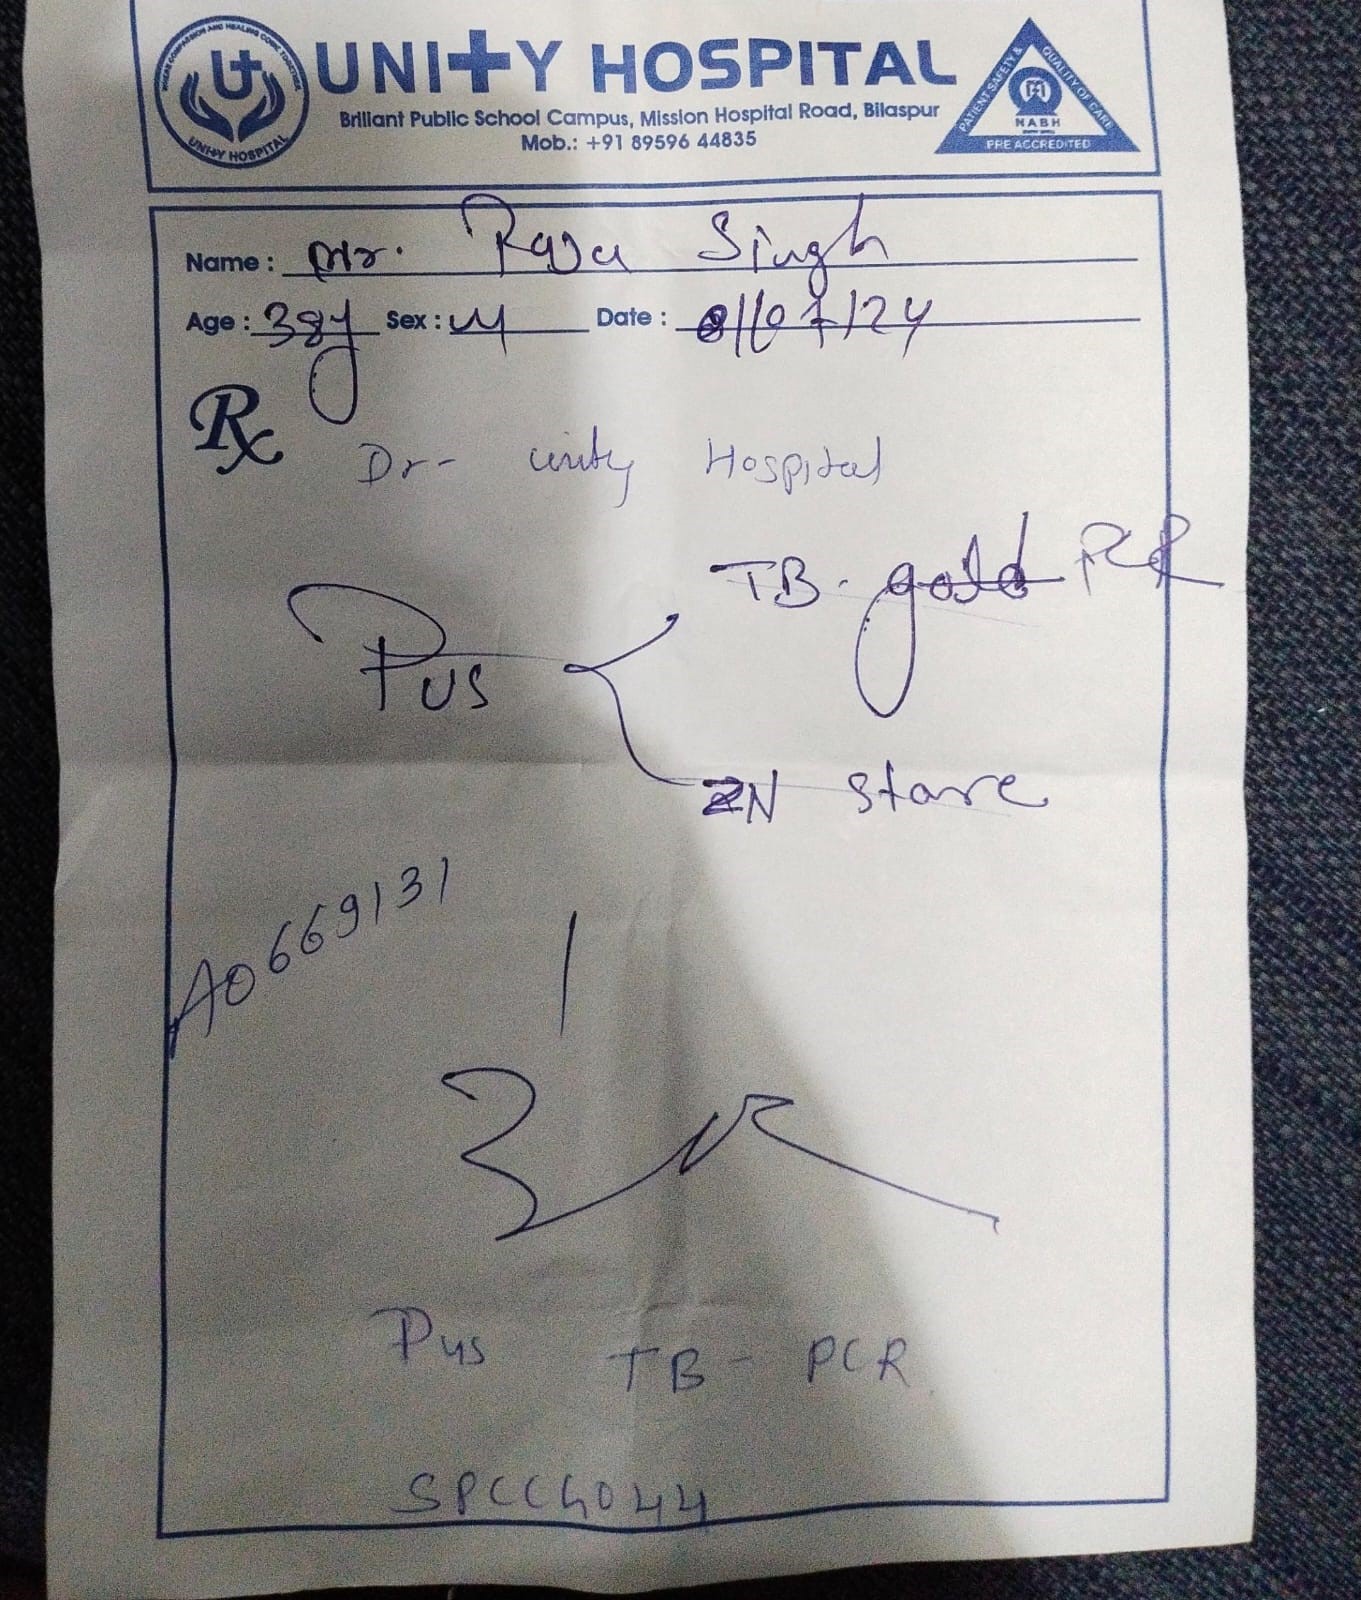 UNITY HOSPITAL
Brilliant Public School Campus, Mission Hospital Road, Bilaspur
Mob.: +91 89596 44835
WHERE COMPASSION AND HEALING COME TOGETHER
UNITY HOSPITAL
PATIENT SAFETY & QUALITY OF CARE
NABH
PRE ACCREDITED
Name : Mr. Raja Singh
Age : 38y Sex : M Date : 8/07/24
Rx
Dr- Unity Hospital
TB. gold PCR
Pus
ZN stare
A0669131
Pus TB - PCR
SPCC4044